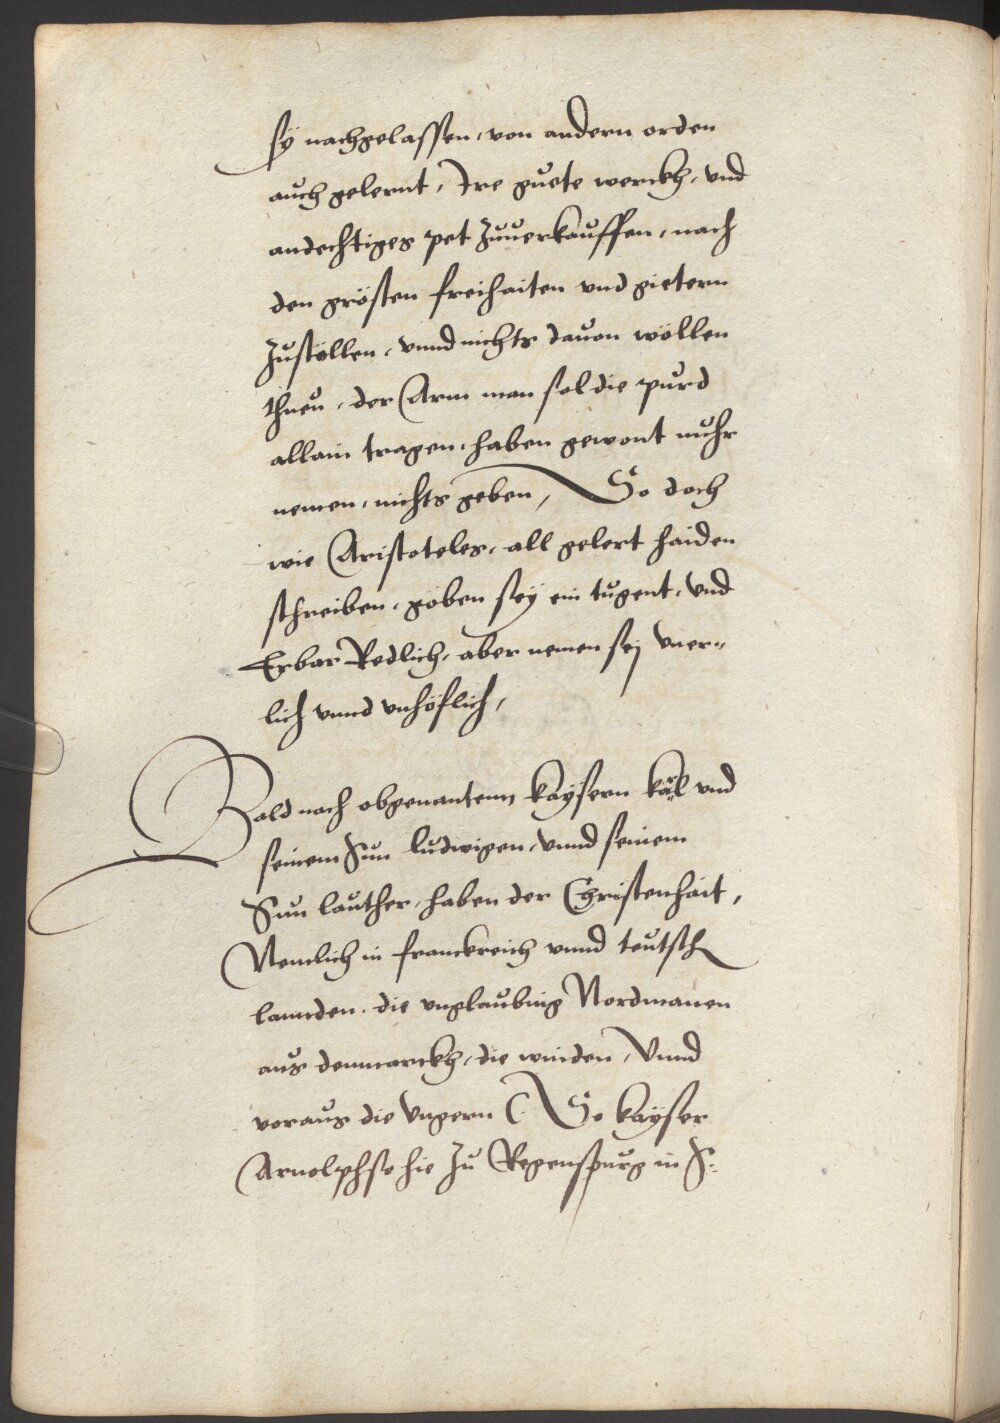 sÿ nachgelassen, von andern orden
auch gelernt, Ire guete werckh, vnd
andechtiges pet zuuerkauffen, nach
den grösten freihaiten vnd gietern
zustöllen, vnnd nichts dauon wöllen
thuen, der Arm man sol die purd
allain tragen, haben gewont nuhr
nemen, nichts geben, So doch
wie Aristoteles, all gelert haiden
schreiben, göben seÿ ein tugent, vnd
Erbar Redlich, aber nemen sej vner„
lich vnnd vnhöflich,
Bald nach obgenantenn kaÿsern kärl vnd
seinem Sun ludwigen, vnnd seinem
Sun lauther, haben der Christenhait,
Nemlich in franckreich vnnd teutsch
lannden, die vnglaubnig Nordmanen
aus denmarckh, die winden, Vnnd
voraus die Vngern (So kaÿser
Arnolph so hie zu Regenspurg in S: